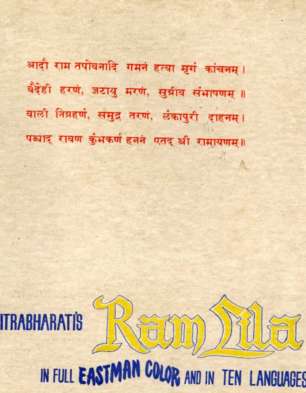 आदौ राम तपोवनादि गमनं हत्वा मृगं कांचनम्।
वैदेही हरणं, जटायु मरणं, सुग्रीव संभाषणम्॥
वाली निग्रहणं, समुद्र तरणं, लंकापुरी दाहनम्।
पश्चाद् रावण कुंभकर्ण हननं एतद् श्री रामायणम्॥
ITRABHARATI'S Ram Lila
IN FULL EASTMAN COLOR AND IN TEN LANGUAGES